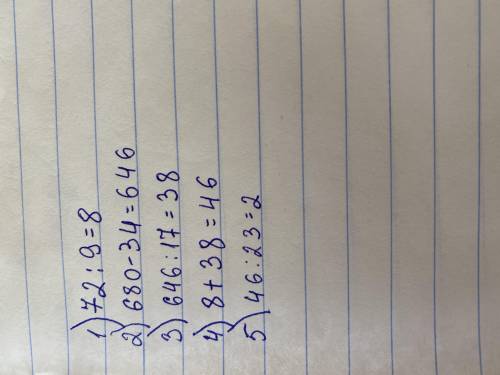 1) 72:9=8
2) 680-34=646
3) 646:17=38
4) 8+38=46
5) 46:23=2